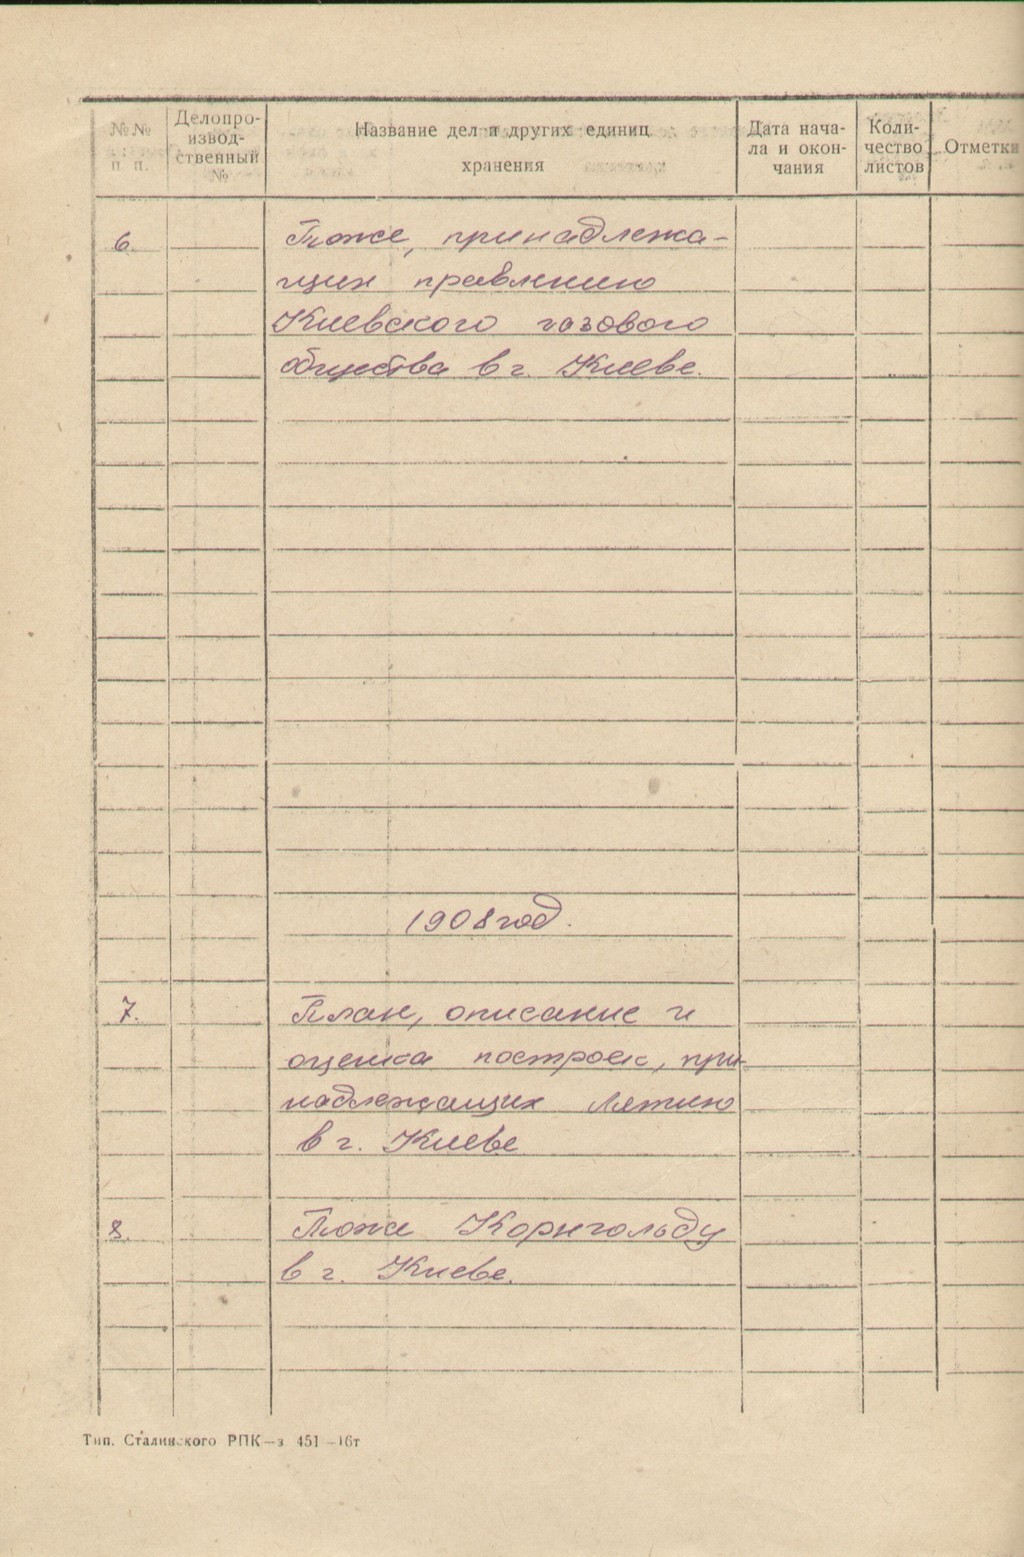 №№ п п.
Делопро-
извод-
ственный
№
Название дел и других единиц
хранения
Дата нача-
ла и окон-
чания
Коли-
чество
листов
Отметки
6. Тоже, принадлежа-
щих правлению
Киевского газового
общества в г. Киеве.
1908 год.
7. План, описание и
оценка построек, при-
надлежащих
в г. Киеве
8. Тоже Корнгольду
в г. Киеве.
Тип. Сталинского РПК—з 451—16т